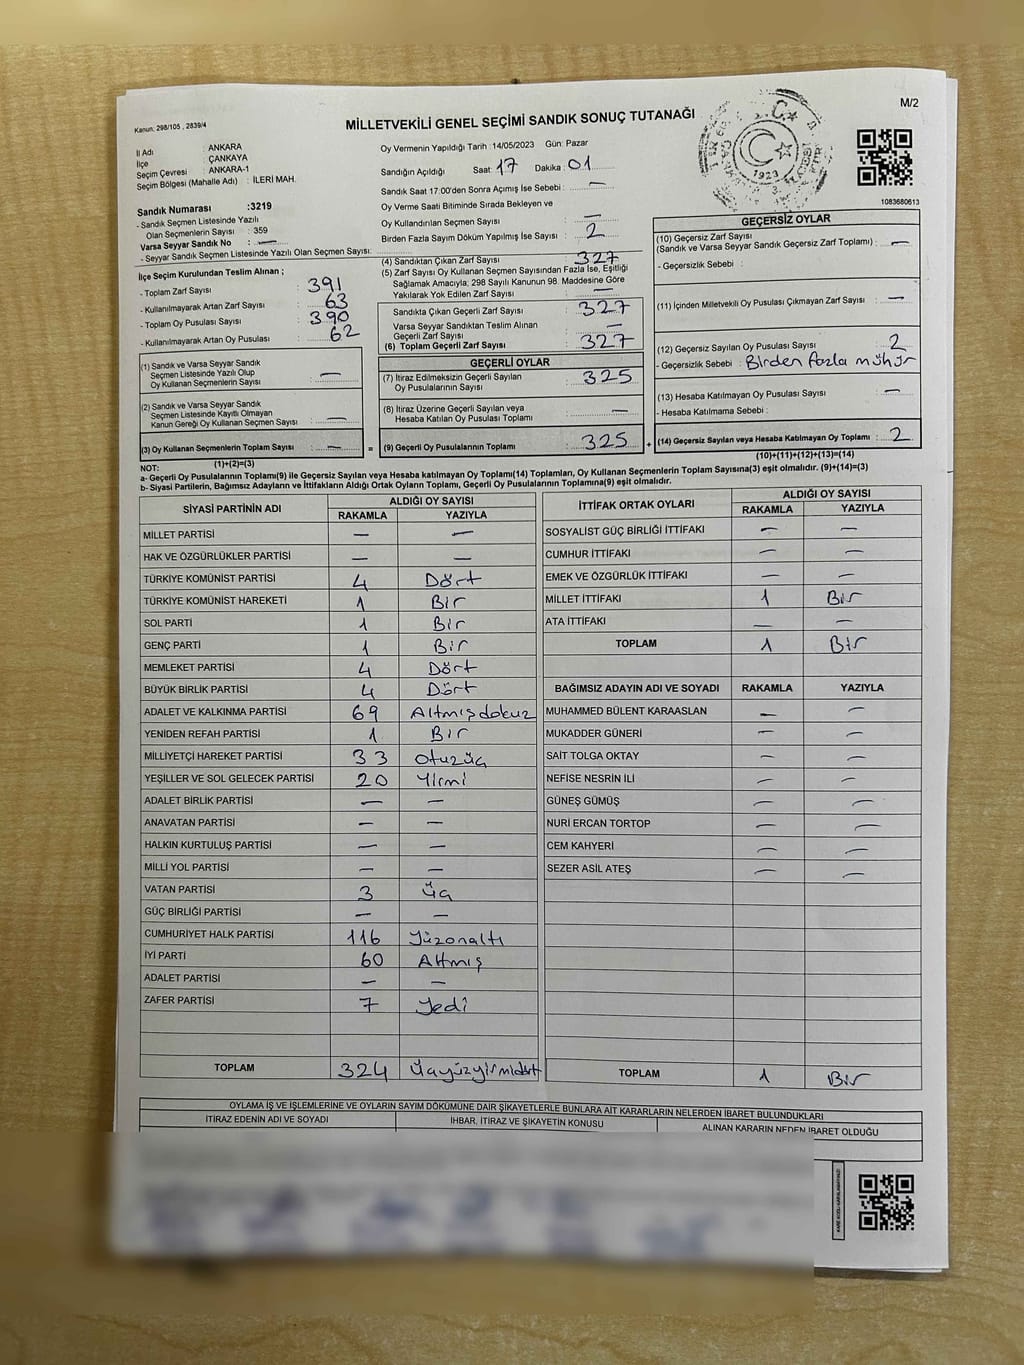 Kanun; 298/105 , 2839/4
MİLLETVEKİLİ GENEL SEÇİMİ SANDIK SONUÇ TUTANAĞI
M/2
İl Adı : ANKARA
İlçe : ÇANKAYA
Seçim Çevresi : ANKARA-1
Seçim Bölgesi (Mahalle Adı) : İLERİ MAH.
Sandık Numarası :3219
- Sandık Seçmen Listesinde Yazılı
Olan Seçmenlerin Sayısı : 359
Varsa Seyyar Sandık No : —
- Seyyar Sandık Seçmen Listesinde Yazılı Olan Seçmen Sayısı:
İlçe Seçim Kurulundan Teslim Alınan ;
- Toplam Zarf Sayısı 391
- Kullanılmayarak Artan Zarf Sayısı 63
- Toplam Oy Pusulası Sayısı 390
- Kullanılmayarak Artan Oy Pusulası 62
(1) Sandık ve Varsa Seyyar Sandık
Seçmen Listesinde Yazılı Olup
Oy Kullanan Seçmenlerin Sayısı : —
(2) Sandık ve Varsa Seyyar Sandık
Seçmen Listesinde Kayıtlı Olmayan
Kanun Gereği Oy Kullanan Seçmen Sayısı : —
(3) Oy Kullanan Seçmenlerin Toplam Sayısı : — =
(1)+(2)=(3)
Oy Vermenin Yapıldığı Tarih :14/05/2023 Gün: Pazar
Sandığın Açıldığı Saat: 17 Dakika : 01
Sandık Saat 17:00'den Sonra Açımış İse Sebebi : —
Oy Verme Saati Bitiminde Sırada Bekleyen ve
Oy Kullandırılan Seçmen Sayısı : —
Birden Fazla Sayım Döküm Yapılmış İse Sayısı : 2
(4) Sandıktan Çıkan Zarf Sayısı : 327
(5) Zarf Sayısı Oy Kullanan Seçmen Sayısından Fazla İse, Eşitliği
Sağlamak Amacıyla; 298 Sayılı Kanunun 98. Maddesine Göre
Yakılarak Yok Edilen Zarf Sayısı : —
Sandıkta Çıkan Geçerli Zarf Sayısı : 327
Varsa Seyyar Sandıktan Teslim Alınan
Geçerli Zarf Sayısı : —
(6) Toplam Geçerli Zarf Sayısı : 327
GEÇERLİ OYLAR
(7) İtiraz Edilmeksizin Geçerli Sayılan
Oy Pusulalarının Sayısı : 325
(8) İtiraz Üzerine Geçerli Sayılan veya
Hesaba Katılan Oy Pusulası Toplamı : —
(9) Geçerli Oy Pusulalarının Toplamı : 325 +
1923
1083680613
GEÇERSİZ OYLAR
(10) Geçersiz Zarf Sayısı
(Sandık ve Varsa Seyyar Sandık Geçersiz Zarf Toplamı) : —
- Geçersizlik Sebebi :
(11) İçinden Milletvekili Oy Pusulası Çıkmayan Zarf Sayısı : —
(12) Geçersiz Sayılan Oy Pusulası Sayısı : 2
- Geçersizlik Sebebi : Birden fazla mühür
(13) Hesaba Katılmayan Oy Pusulası Sayısı : —
- Hesaba Katılmama Sebebi :
(14) Geçersiz Sayılan veya Hesaba Katılmayan Oy Toplamı : 2
(10)+(11)+(12)+(13)=(14)
NOT:
a- Geçerli Oy Pusulalarının Toplamı(9) ile Geçersiz Sayılan veya Hesaba katılmayan Oy Toplamı(14) Toplamları, Oy Kullanan Seçmenlerin Toplam Sayısına(3) eşit olmalıdır. (9)+(14)=(3)
b- Siyasi Partilerin, Bağımsız Adayların ve İttifakların Aldığı Ortak Oyların Toplamı, Geçerli Oy Pusulalarının Toplamına(9) eşit olmalıdır.
SİYASİ PARTİNİN ADI ALDIĞI OY SAYISI
RAKAMLA YAZIYLA
MİLLET PARTİSİ — —
HAK VE ÖZGÜRLÜKLER PARTİSİ — —
TÜRKİYE KOMÜNİST PARTİSİ 4 Dört
TÜRKİYE KOMÜNİST HAREKETİ 1 Bir
SOL PARTİ 1 Bir
GENÇ PARTİ 1 Bir
MEMLEKET PARTİSİ 4 Dört
BÜYÜK BİRLİK PARTİSİ 4 Dört
ADALET VE KALKINMA PARTİSİ 69 Altmışdokuz
YENİDEN REFAH PARTİSİ 1 Bir
MİLLİYETÇİ HAREKET PARTİSİ 33 Otuzüç
YEŞİLLER VE SOL GELECEK PARTİSİ 20 Yirmi
ADALET BİRLİK PARTİSİ — —
ANAVATAN PARTİSİ — —
HALKIN KURTULUŞ PARTİSİ — —
MİLLİ YOL PARTİSİ — —
VATAN PARTİSİ 3 Üç
GÜÇ BİRLİĞİ PARTİSİ — —
CUMHURİYET HALK PARTİSİ 116 Yüzonaltı
İYİ PARTİ 60 Altmış
ADALET PARTİSİ — —
ZAFER PARTİSİ 7 Yedi
TOPLAM 324 Üçyüzyirmidört
İTTİFAK ORTAK OYLARI ALDIĞI OY SAYISI
RAKAMLA YAZIYLA
SOSYALİST GÜÇ BİRLİĞİ İTTİFAKI — —
CUMHUR İTTİFAKI — —
EMEK VE ÖZGÜRLÜK İTTİFAKI — —
MİLLET İTTİFAKI 1 Bir
ATA İTTİFAKI — —
TOPLAM 1 Bir
BAĞIMSIZ ADAYIN ADI VE SOYADI RAKAMLA YAZIYLA
MUHAMMED BÜLENT KARAASLAN — —
MUKADDER GÜNERİ — —
SAİT TOLGA OKTAY — —
NEFİSE NESRİN İLİ — —
GÜNEŞ GÜMÜŞ — —
NURİ ERCAN TORTOP — —
CEM KAHYERİ — —
SEZER ASİL ATEŞ — —
TOPLAM 1 Bir
OYLAMA İŞ VE İŞLEMLERİNE VE OYLARIN SAYIM DÖKÜMÜNE DAİR ŞİKAYETLERLE BUNLARA AİT KARARLARIN NELERDEN İBARET BULUNDUKLARI
İTİRAZ EDENİN ADI VE SOYADI İHBAR, İTİRAZ VE ŞİKAYETİN KONUSU ALINAN KARARIN NEDEN İBARET OLDUĞU